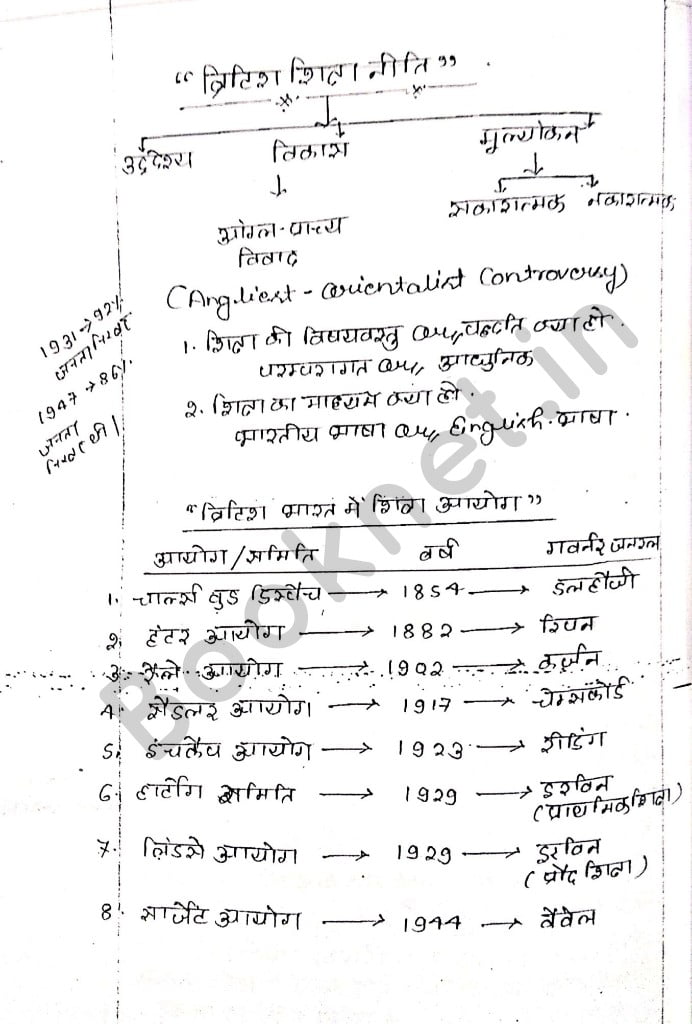 “ब्रिटिश शिक्षा नीति”
उद्देश्य विकास मूल्यांकन
सकारात्मक नकारात्मक
आंग्ल-प्राच्य
विवाद
(Angliest - Orientalist Controversy)
1931→92%
जनता निरक्षर
1947→86%
जनता
निरक्षर थी।
1. शिक्षा की विषयवस्तु पद्धति क्या हो.
परम्परागत आधुनिक
2. शिक्षा का माध्यम क्या हो.
भारतीय भाषा English-भाषा.
“ब्रिटिश भारत में शिक्षा आयोग”
आयोग/समिति वर्ष गवर्नर जनरल
1. चार्ल्स वुड डिस्पैच → 1854 → डलहौजी
2. हंटर आयोग → 1882 → रिपन
3. रैले आयोग → 1902 → कर्जन
4. सैडलर आयोग → 1917 → चेम्सफोर्ड
5. इंचकैप आयोग → 1923 → रीडिंग
6. हार्टोग समिति → 1929 → इरविन
(प्राथमिक शिक्षा)
7. लिंडसे आयोग → 1929 → इरविन
(प्रौढ शिक्षा)
8. सार्जेंट आयोग → 1944 → वैवेल
Booknet.in